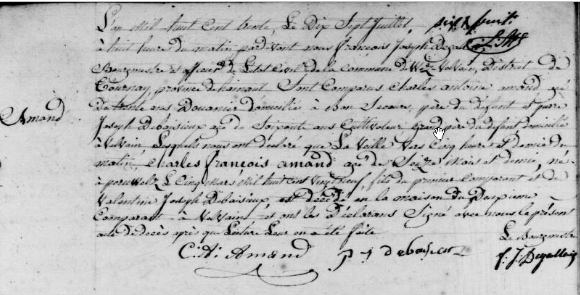 L'an mil huit cent trente, Le Dix Sept Juillet,
à huit heure du matin pardevant nous françois Joseph
Bourgmestre et officier de L'état Civil de la commune de Wez Velvain, District de
Tournay, province de hainaut. Sont Comparus Charles antoine amand agé
de trente ans Douanier Domicilié à Bon Secours, père du défunt et pierre
Amand
Joseph Debaisieux agé de Soixante ans Cultivateur grand père du défunt domicilié
à Velvain, Lesquels nous ont déclaré que La Veille Vers Cinq heures et demie du
matin, Charles françois amand agé de Seize Mois et demie, né
à peruwelz Le Cinq Mars mil huit cent Vingt neuf, fils du premier Comparant et de
Valentine Joseph Debaisieux, est Décédé en la maison du
Comparant à Velvain et ont les Déclarans Signé avec nous le présent
acte de décès après que Lecture Leur en a été faite
Le Bourgmestre
C: A: Amand
p j debaisieux
f. J.